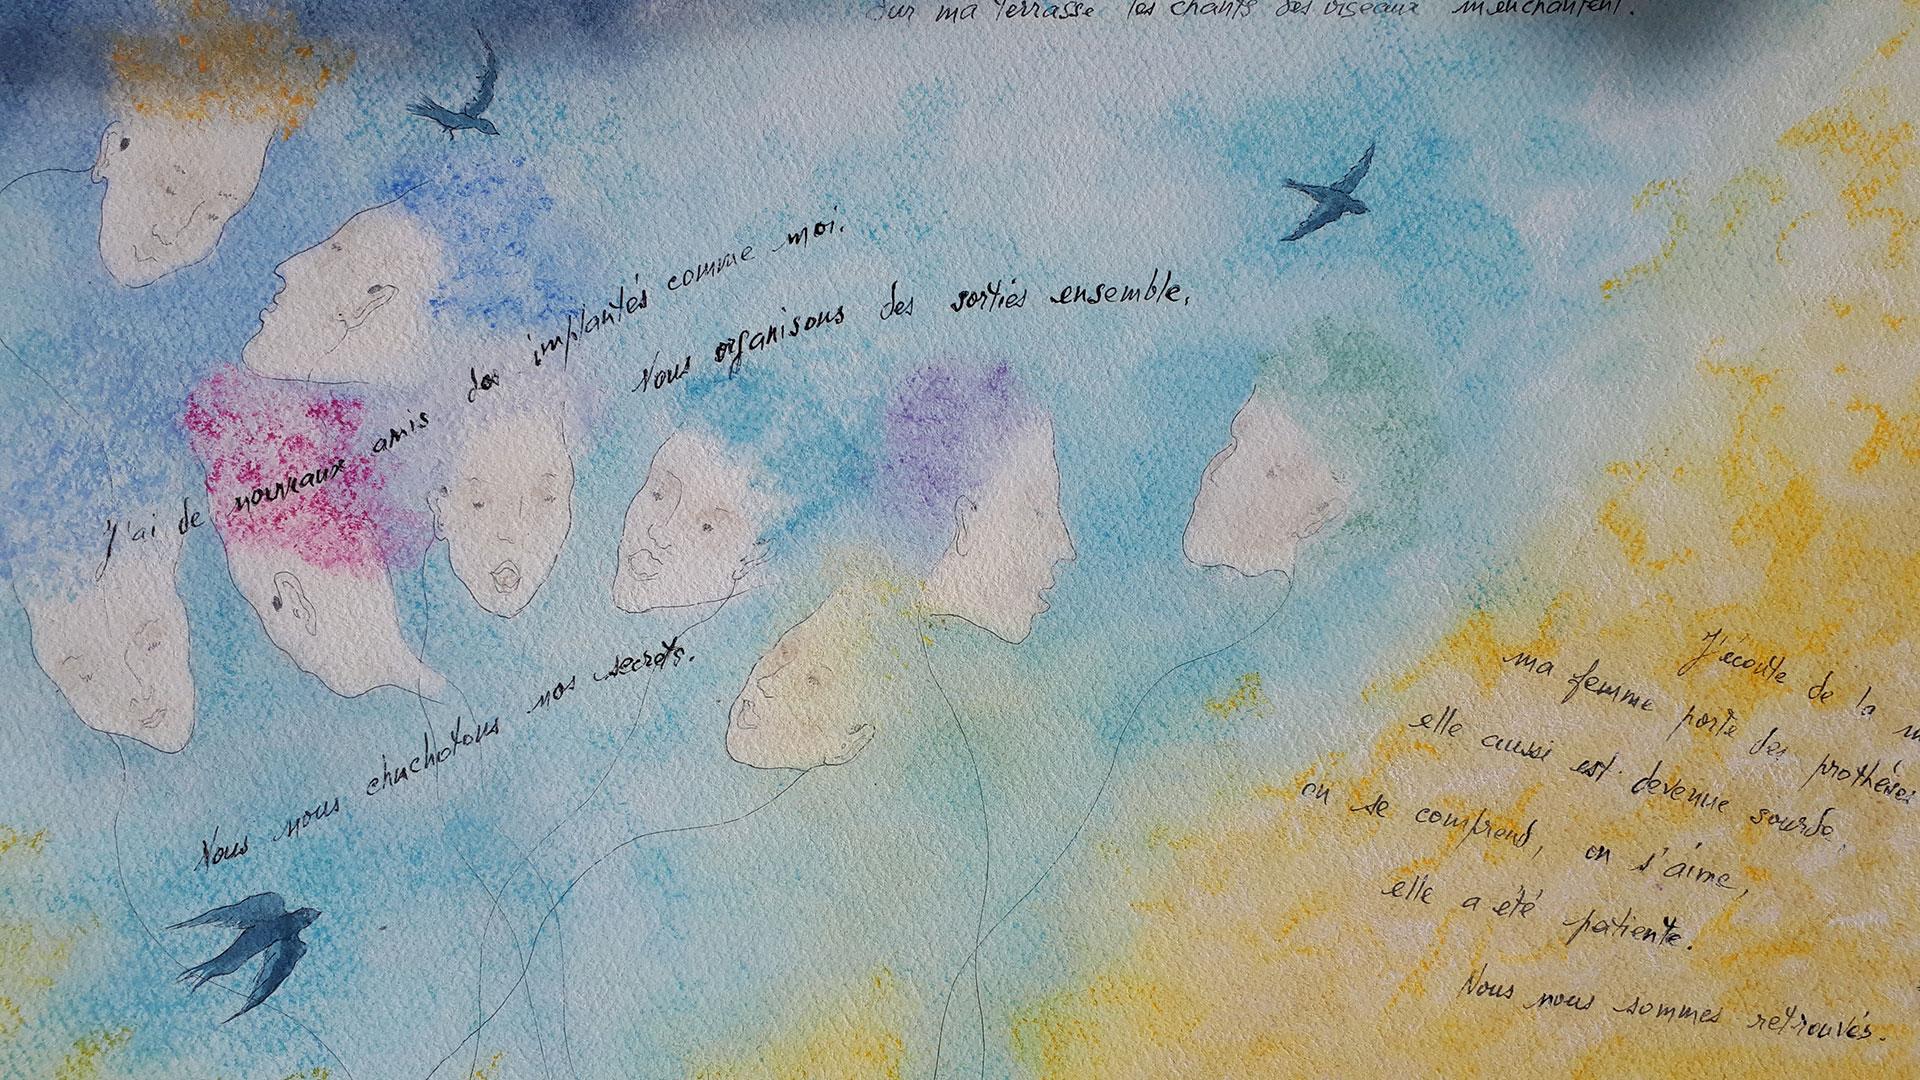 Sur ma terrasse les chants des oiseaux m'enchantent.
J'ai de nouveaux amis des implantés comme moi.
Nous organisons des sorties ensemble,
Nous nous chuchotons nos secrets.
J'écoute de la
ma femme porte des prothèses
elle aussi est devenue sourde,
on se comprend, on s'aime,
elle a été patiente.
Nous nous sommes retrouvés.